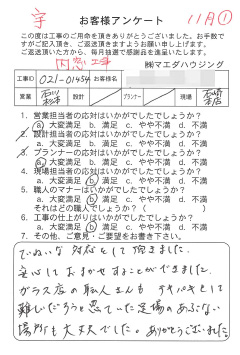 字 お客様アンケート 11月①
この度は工事のご用命を頂きありがとうございました。お手数で
すがご記入頂き、ご返送頂きますようお願い申し上げます。
ご返送頂いた方から、毎月抽選で感謝品を進呈いたします。
内窓工事 ㈱マエダハウジング
工事ID 021-01454 お客様名
営業 石川 松本 設計 プランナー 現場 石崎 本店
1. 営業担当者の応対はいかがでしたでしょうか?
a. 大変満足 b. 満足 c. やや不満 d. 不満
2. 設計担当者の応対はいかがでしたでしょうか?
a. 大変満足 b. 満足 c. やや不満 d. 不満
3. プランナーの応対はいかがでしたでしょうか?
a. 大変満足 b. 満足 c. やや不満 d. 不満
4. 現場担当者の応対はいかがでしたでしょうか?
a. 大変満足 b. 満足 c. やや不満 d. 不満
5. 職人のマナーはいかがでしたでしょうか?
a. 大変満足 b. 満足 c. やや不満 d. 不満
それはどの職人でしょうか?( )
6. 工事の仕上がりはいかがでしたでしょうか?
a. 大変満足 b. 満足 c. やや不満 d. 不満
7. その他、ご意見・ご要望をお書き下さい。
ていねいな対応をして頂きました。
安心しておまかせすることができました。
ガラス店の職人さんもテキパキをして
難しいだろうと思っていた足場のあぶない
場所も大丈でした。ありがとうございました。